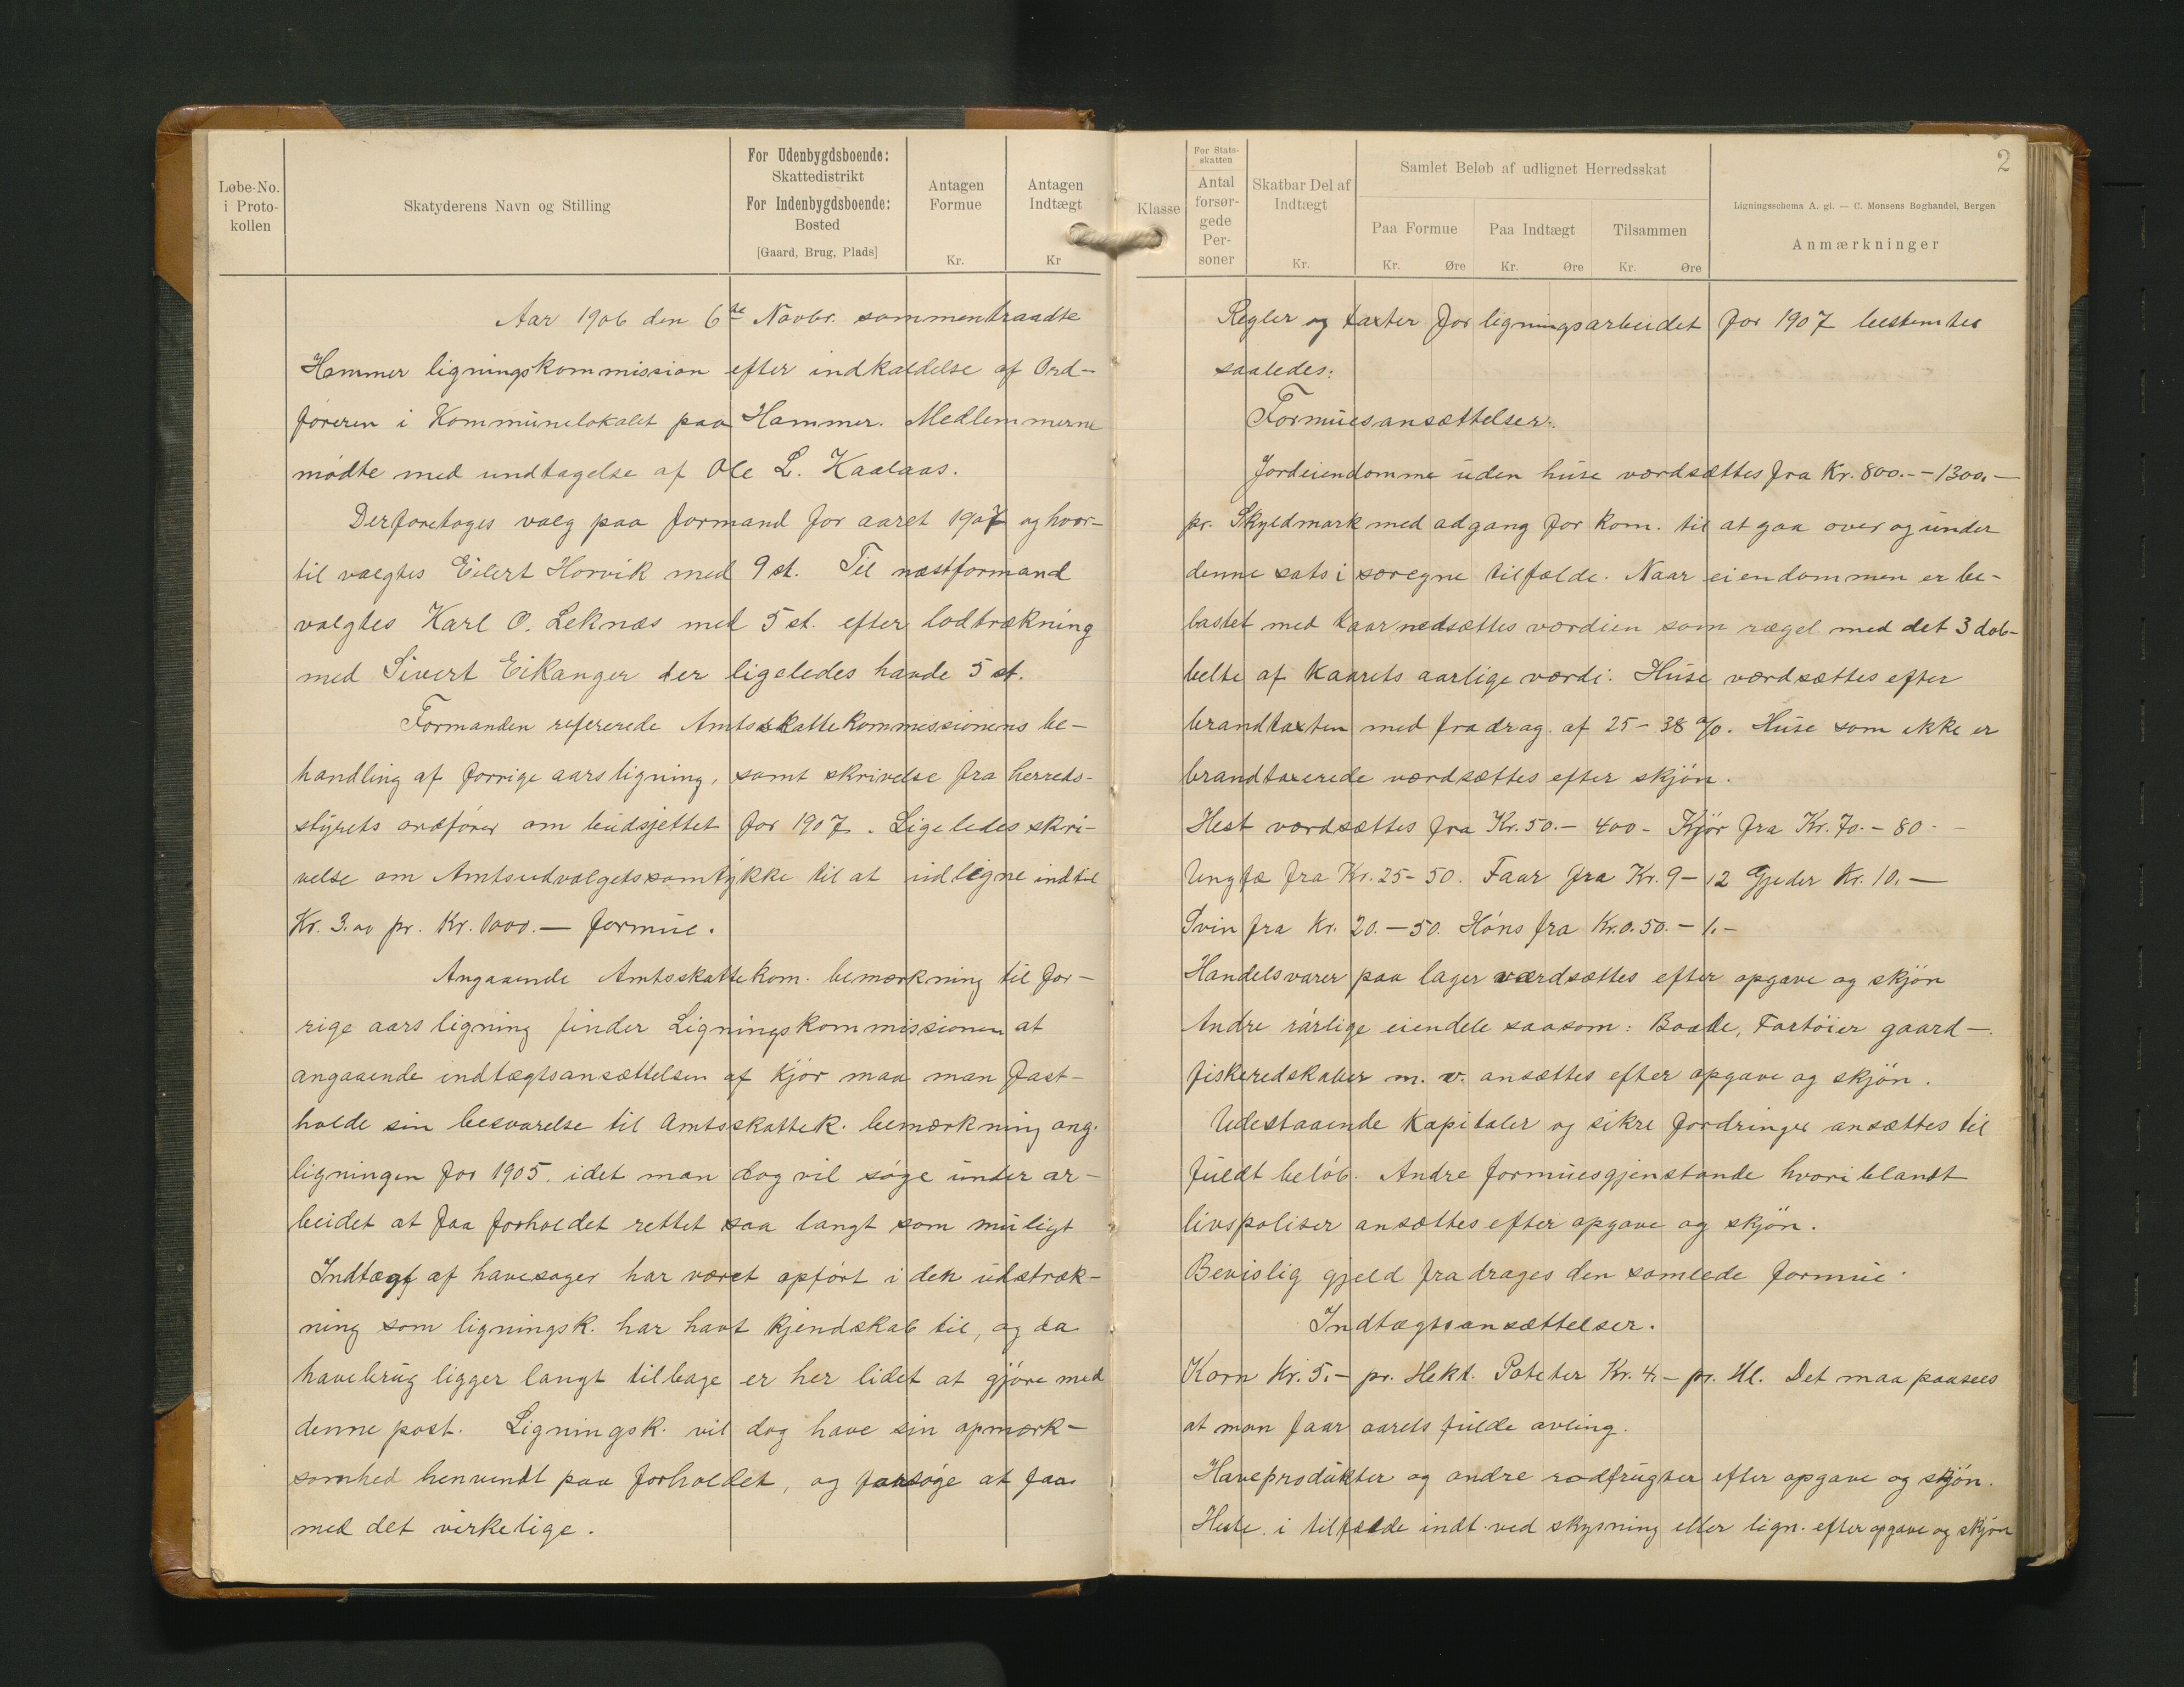 Løbe-No.
i Proto-
kollen
Skatyderens Navn og Stilling
For Udenbygdsboende:
Skattedistrikt
For Indenbygdsboende:
Bosted
[Gaard, Brug, Plads]
Antagen
Formue
Kr.
Antagen
Indtægt
Kr
Aar 1906 den 6te Novbr. sammentraadte
Hammer ligningskommission efter indkaldelse af Ord-
føreren i Kommunelokalet paa Hammer. Medlemmerne
mødte med undtagelse af Ole L. Kaalaas.
Der foretoges valg paa formand for aaret 1907 og hvor-
til valgtes Eilert Horvik med 9 st. Til næstformand
valgtes Karl O. Leknæs med 5 st. efter lodtrækning
med Sivert Eikanger der ligeledes havde 5 st.
Formanden refererede Amtsskattekommissionens be-
handling af forrige aars ligning, samt skrivelse fra herreds-
styrets ordfører om budsjettet for 1907. Ligeledes skri-
velse om Amtsudvalgets samtykke til at udligne indtil
Kr. 3.00 pr. Kr. 1000.— formue.
Angaaende Amtsskattekom. bemærkning til for-
rige aars ligning finder Ligningskommissionen at
angaaende indtægtsansættelsen af Kjør maa man fast-
holde sin besvarelse til Amtsskattek. bemærkning ang.
ligningen for 1905. idet man dog vil søge under ar-
beidet at faa forholdet rettet saa langt som muligt
Indtægt af havesager har været opført i den udstræk-
ning som ligningsk. har havt kjendskab til, og da
havebrug ligger langt tilbage er her lidet at gjøre med
denne post. Ligningsk. vil dog have sin opmærk-
somhed henvendt paa forholdet, og forsøge at faa
med det virkelige.
2
Klasse
For Stats-
skatten
Antal
forsør-
gede
Per-
soner
Skatbar Del af
Indtægt
Kr.
Samlet Beløb af udlignet Herredsskat
Paa Formue
Kr. Øre
Paa Indtægt
Kr. Øre
Tilsammen
Kr. Øre
Ligningsschema A. gl. — C. Monsens Boghandel, Bergen
Anmærkninger
Regler og taxter for ligningsarbeidet for 1907 bestemtes
saaledes:
Formuesansættelser:
Jordeiendomme uden huse værdsættes fra Kr. 800.- – 1300.—
pr. Skyldmark med adgang for Kom. til at gaa over og under
denne sats i særegne tilfælde. Naar eiendommen er be-
bastet med Kaar nedsættes værdien som rægel med det 3 dob-
belte af Kaarets aarlige værdi. Huse værdsættes efter
brandtaxten med fradrag af 25 - 38 %. Huse som ikke er
brandtaxerede værdsættes efter skjøn.
Hest værdsættes fra Kr. 50.- 400 - Kjør fra Kr. 70. - 80 -
Ungfæ fra Kr. 25 - 50. Faar fra Kr. 9 - 12 Gjeder Kr. 10.—
Svin fra Kr. 20. — 50. Høns fra Kr. 0.50. - 1.-
Handelsvarer paa lager værdsættes efter opgave og skjøn
Andre rørlige eiendele saasom: Baade, Fartøier gaard-
fiskeredskaber m. v. ansættes efter opgave og skjøn.
Udestaaende Kapitaler og sikre fordringer ansættes til
fuldt beløb. Andre formuesgjenstande hvoriblandt
livspoliser ansættes efter opgave og skjøn.
Bevislig gjeld fradrages den samlede formue.
Indtægtsansættelser.
Korn Kr. 5.- pr. Hekt. Poteter Kr. 4.- pr. Hl. Det maa paasees
at man faar aarets fulde avling.
Haveprodukter og andre rodfrugter efter opgave og skjøn.
Heste i tilfælde indt. ved skysning eller lign. efter opgave og skjøn